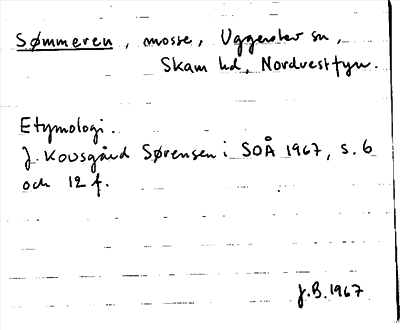 Sømmeren, mosse, Uggerslev sn,
Skam hd, Nordvestfyn.
Etymologi.
J. Kousgård Sørensen i SOÅ 1967, s. 6
och 12 f.
J.B. 1967